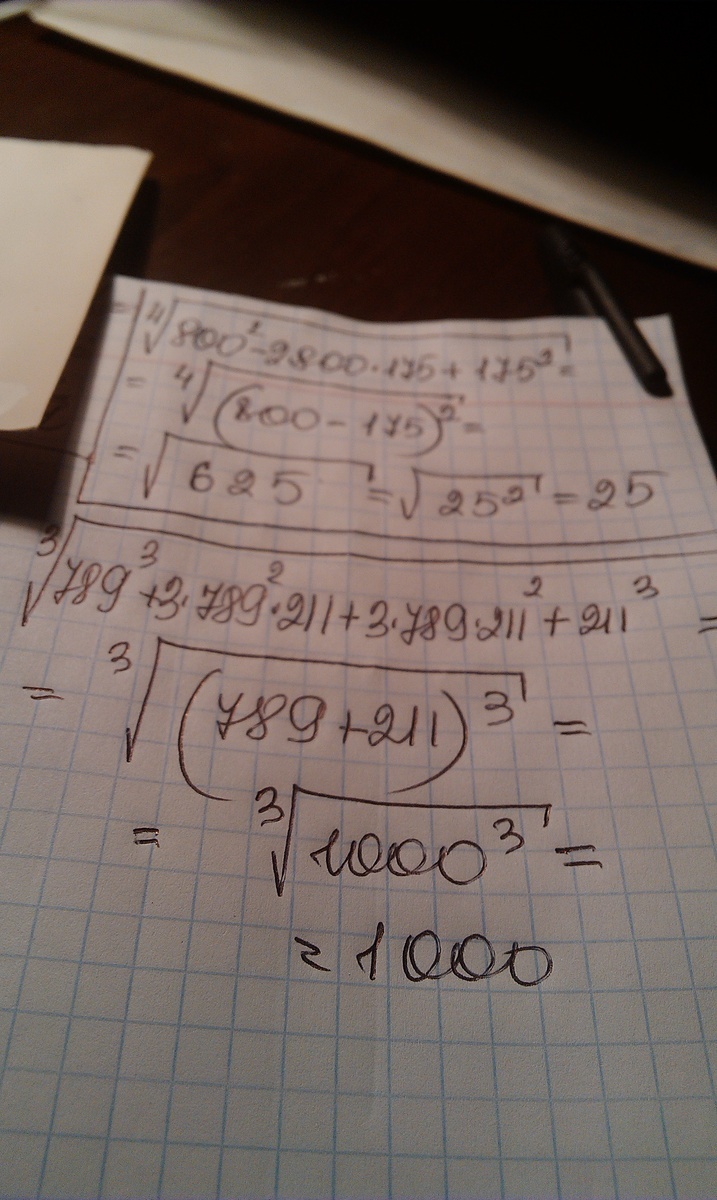 = ⁴√800² - 2800·175 + 175² =
= ⁴√(800 - 175)² =
= √625 = √25² = 25
³√789³ + 3·789²·211 + 3·789·211² + 211³ =
= ³√(789 + 211)³ =
= ³√1000³ =
= 1000